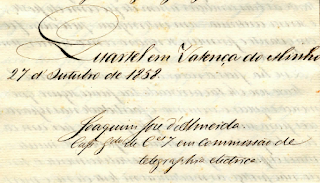 Quartel em Valença do Minho
27 d'Outubro de 1858.
Joaquim José d'Almeida.
Cap. de em Commissão de
telegraphia electrica